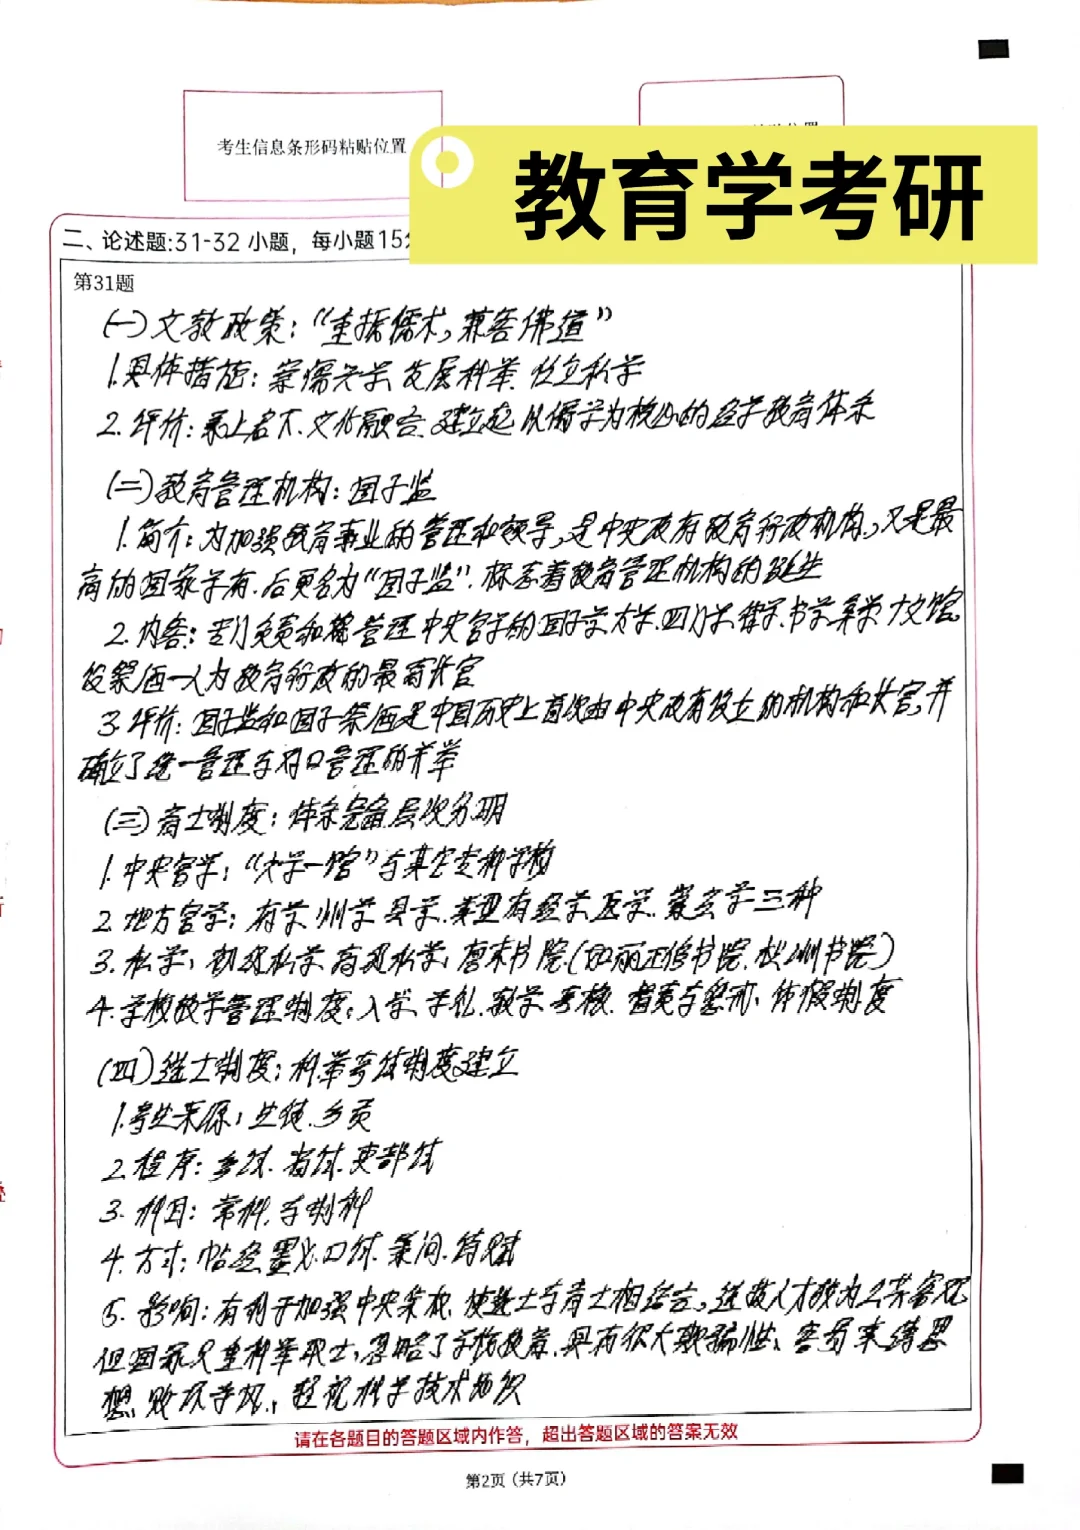 考生信息条形码粘贴位置
教育学考研
二、论述题:31-32 小题，每小题15
第31题
(一)文教政策:“重振儒术,兼容佛道”
1.具体措施:崇儒兴学.发展科举.设立私学
2.评价:承上启下.文化融合.建立起以儒学为核心的经学教育体系
(二)教育管理机构:国子监
1.简介:为加强教育事业的管理和领导,是中央政府教育行政机构,又是最
高的国家学府.后更名为“国子监”.标志着教育管理机构的诞生
2.内容:专门负责和管理中央官学的国子学.太学.四门学.律学.书学.算学.广文馆.
设祭酒一人为教育行政的最高长官
3.评价:国子监和国子祭酒是中国历史上首次由中央政府设立的机构和长官,并
确立了统一管理与对口管理的并举
(三)育士制度:体系完备.层次分明
1.中央官学:“六学一馆”与其它专科学校
2.地方官学:府学.州学.县学.类型有经学.医学.崇玄学三种
3.私学:初级私学.高级私学.唐末书院.(如丽正修书院.)
4.学校教学管理制度:入学.学礼.教学.考核.督责与惩罚.休假制度
(四)选士制度:科举考试制度建立
1.考生来源:生徒.乡贡
2.程序:乡试.省试.吏部试
3.科目:常科.与制科
4.方式:帖经.墨义.口试.策问.诗赋
5.影响:有利于加强中央集权.使选士与育士相结合,选拔人才较为公共客观
但国家只重科举取士,忽略了学校教育.具有很大欺骗性.束缚思
想.败坏学风.,轻视科学技术知识
请在各题目的答题区域内作答，超出答题区域的答案无效
第2页（共7页）